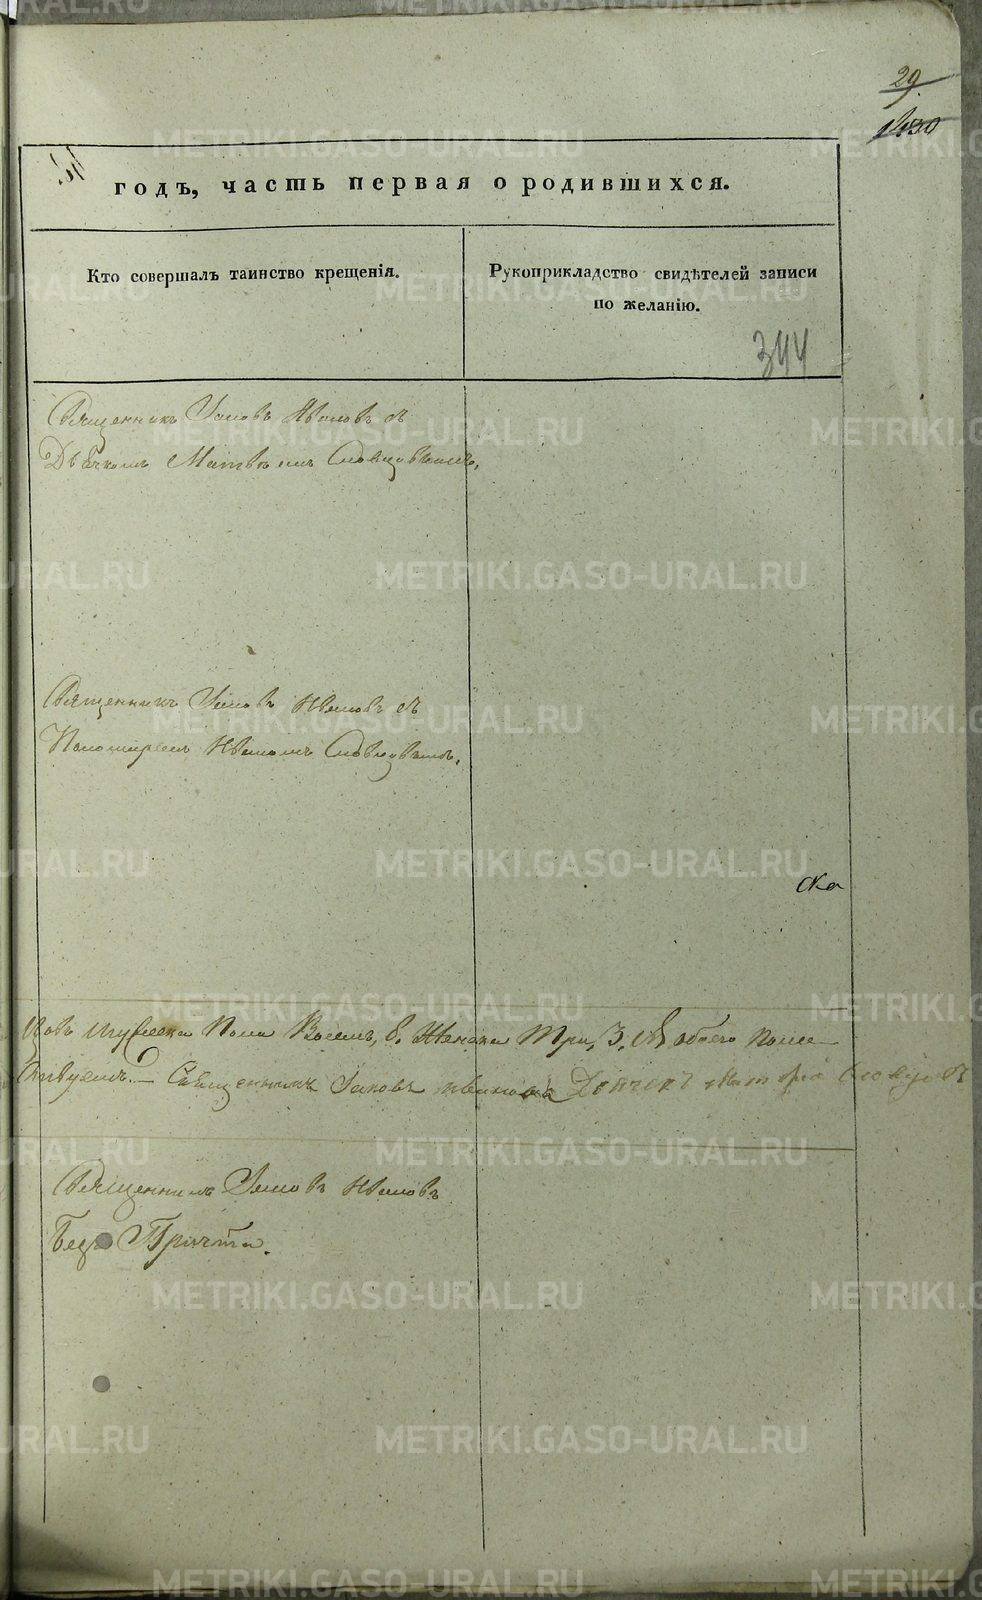 29.
1830
годъ, часть первая о родившихся.
Кто совершалъ таинство крещенія.
Рукоприкладство свидѣтелей записи
по желанію.
344
Священникъ Іаковъ Ивановъ съ
Дьячкомъ Матвѣемъ Словцовымъ,
Священникъ Іаковъ Ивановъ съ
Пономаремъ Иваномъ Словцовымъ.
ска
Мужеска Пола Восемь, 8. Женска Три, 3. обоего пола
Священникъ Іаковъ Ивановъ Дьячекъ
Священникъ Іаковъ Ивановъ
безъ Причта.
METRIKI.GASO-URAL.RU